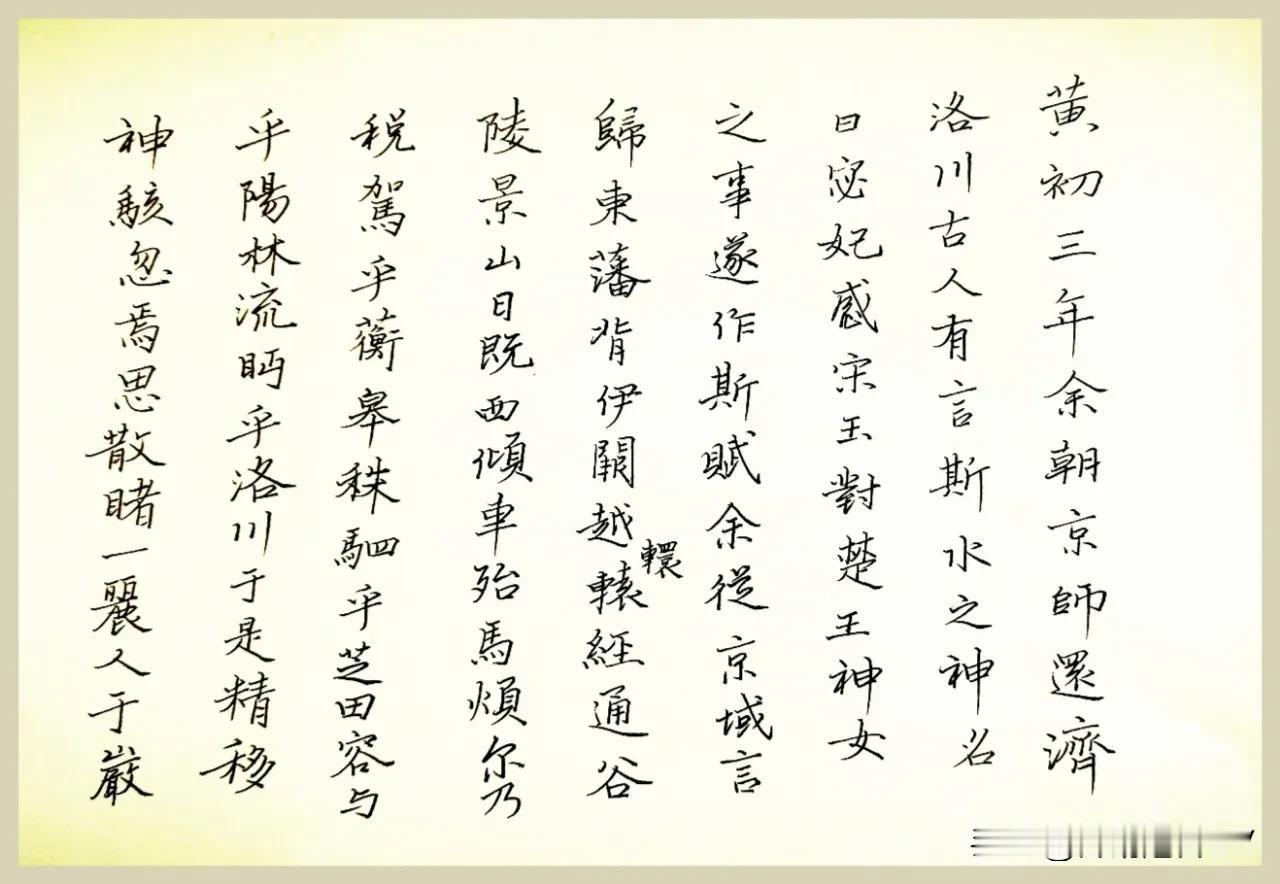 黄初三年余朝京師還濟
洛川古人有言斯水之神名
曰宓妃感宋玉對楚王神女
之事遂作斯賦余從京域言
歸東藩背伊闕越轅經通谷
轘
陵景山日既西傾車殆馬煩尔乃
税駕乎蘅皋秣駟乎芝田容与
乎陽林流眄乎洛川于是精移
神駭忽焉思散睹一麗人于巖